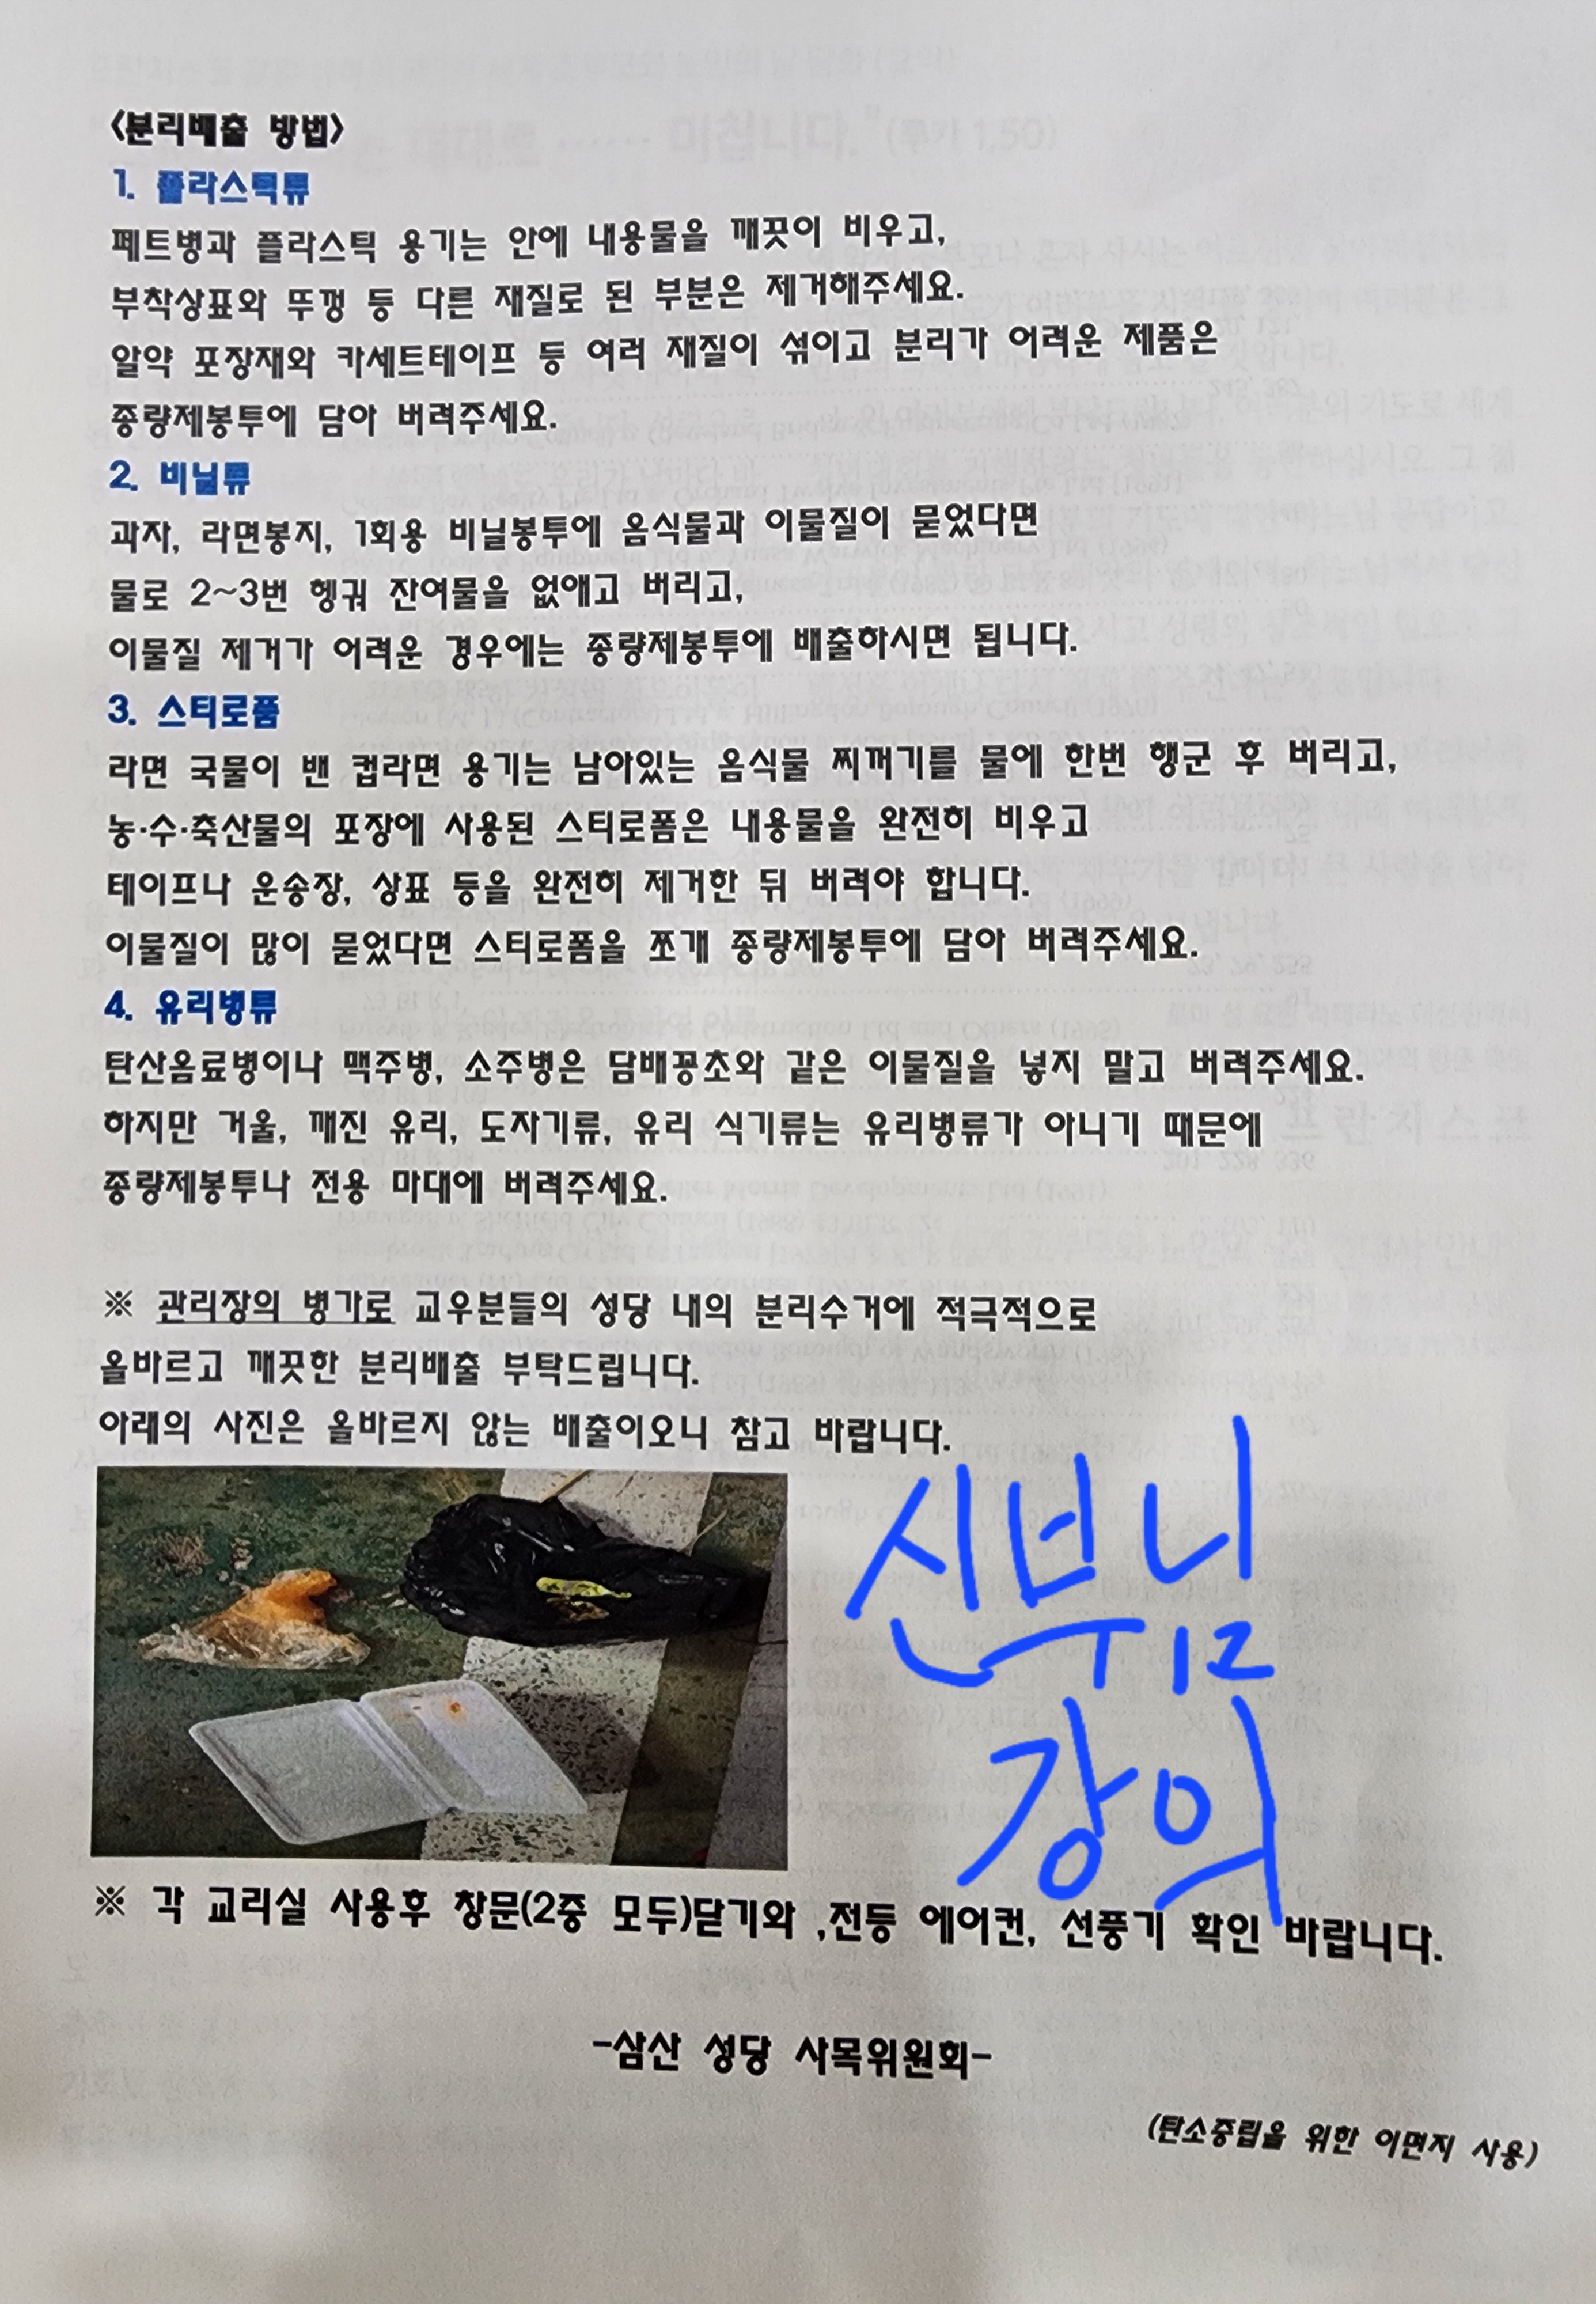 <분리배출 방법>
1. 플라스틱류
페트병과 플라스틱 용기는 안에 내용물을 깨끗이 비우고,
부착상표와 뚜껑 등 다른 재질로 된 부분은 제거해주세요.
알약 포장재와 카세트테이프 등 여러 재질이 섞이고 분리가 어려운 제품은
종량제봉투에 담아 버려주세요.
2. 비닐류
과자, 라면봉지, 1회용 비닐봉투에 음식물과 이물질이 묻었다면
물로 2~3번 헹궈 잔여물을 없애고 버리고,
이물질 제거가 어려운 경우에는 종량제봉투에 배출하시면 됩니다.
3. 스티로폼
라면 국물이 밴 컵라면 용기는 남아있는 음식물 찌꺼기를 물에 한번 행군 후 버리고,
농·수·축산물의 포장에 사용된 스티로폼은 내용물을 완전히 비우고
테이프나 운송장, 상표 등을 완전히 제거한 뒤 버려야 합니다.
이물질이 많이 묻었다면 스티로폼을 쪼개 종량제봉투에 담아 버려주세요.
4. 유리병류
탄산음료병이나 맥주병, 소주병은 담배꽁초와 같은 이물질을 넣지 말고 버려주세요.
하지만 거울, 깨진 유리, 도자기류, 유리 식기류는 유리병류가 아니기 때문에
종량제봉투나 전용 마대에 버려주세요.
※ 관리장의 병가로 교우분들의 성당 내의 분리수거에 적극적으로
올바르고 깨끗한 분리배출 부탁드립니다.
아래의 사진은 올바르지 않는 배출이오니 참고 바랍니다.
신부님
강의
※ 각 교리실 사용후 창문(2중 모두)닫기와 ,전등 에어컨, 선풍기 확인 바랍니다.
-삼산 성당 사목위원회-
(탄소중립을 위한 이면지 사용)